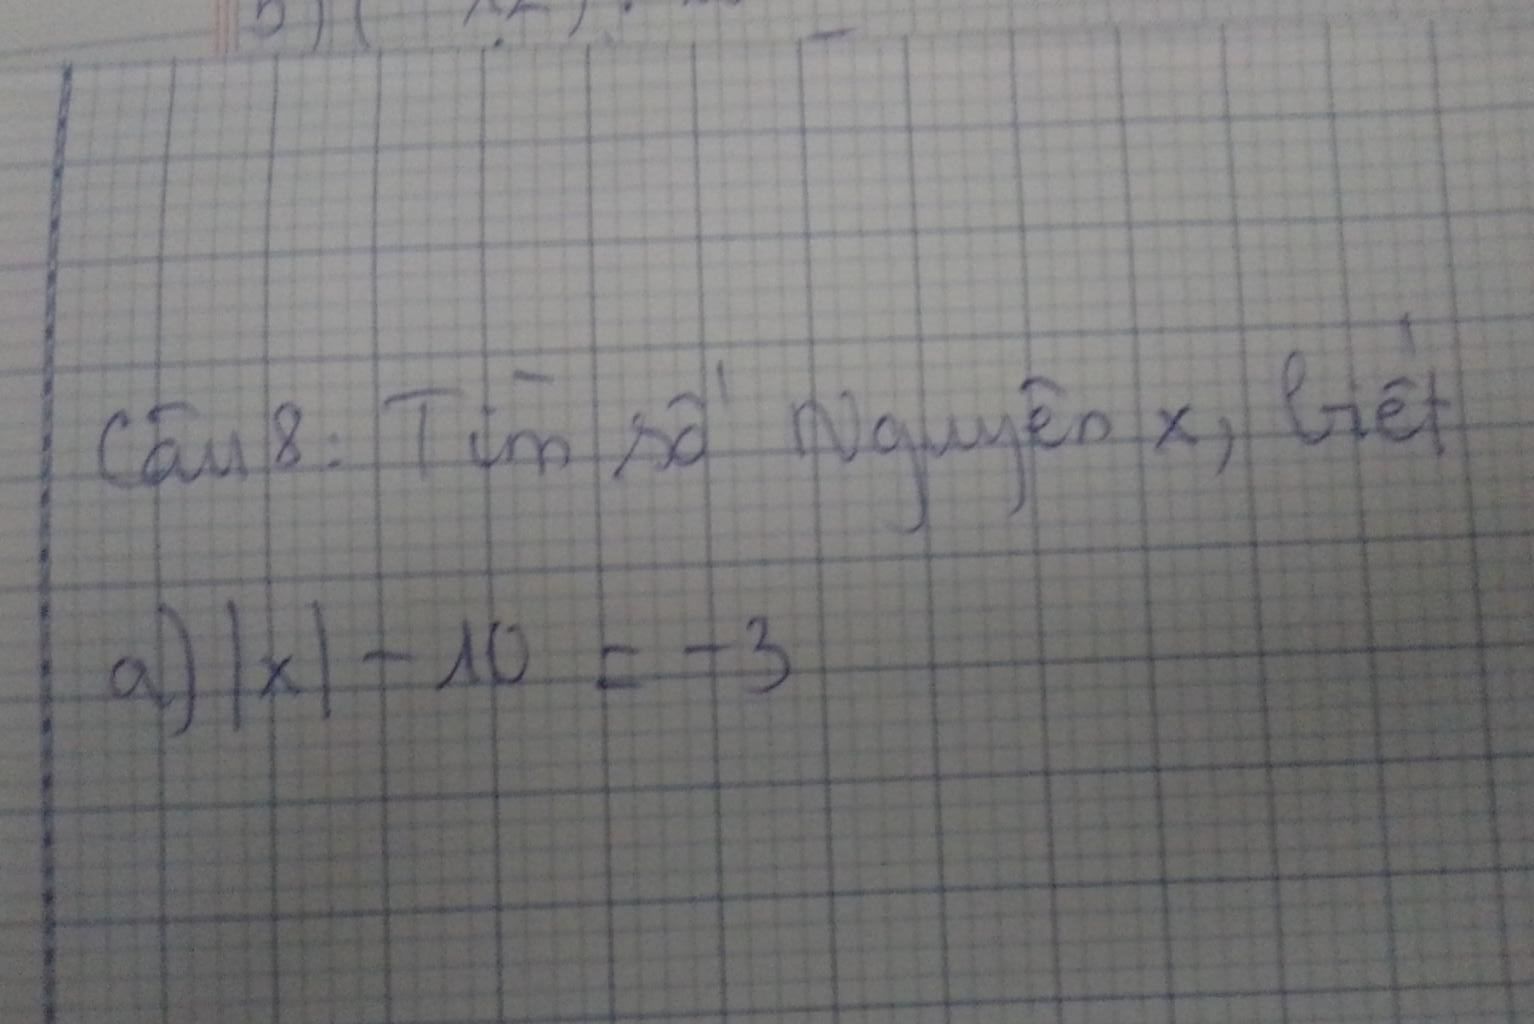 Câu 8: Tìm số Nguyên x, biết
a) |x| - 10 = -3